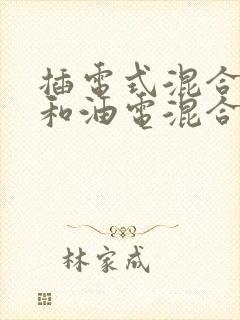 插電式混合
和油電混合
林家成